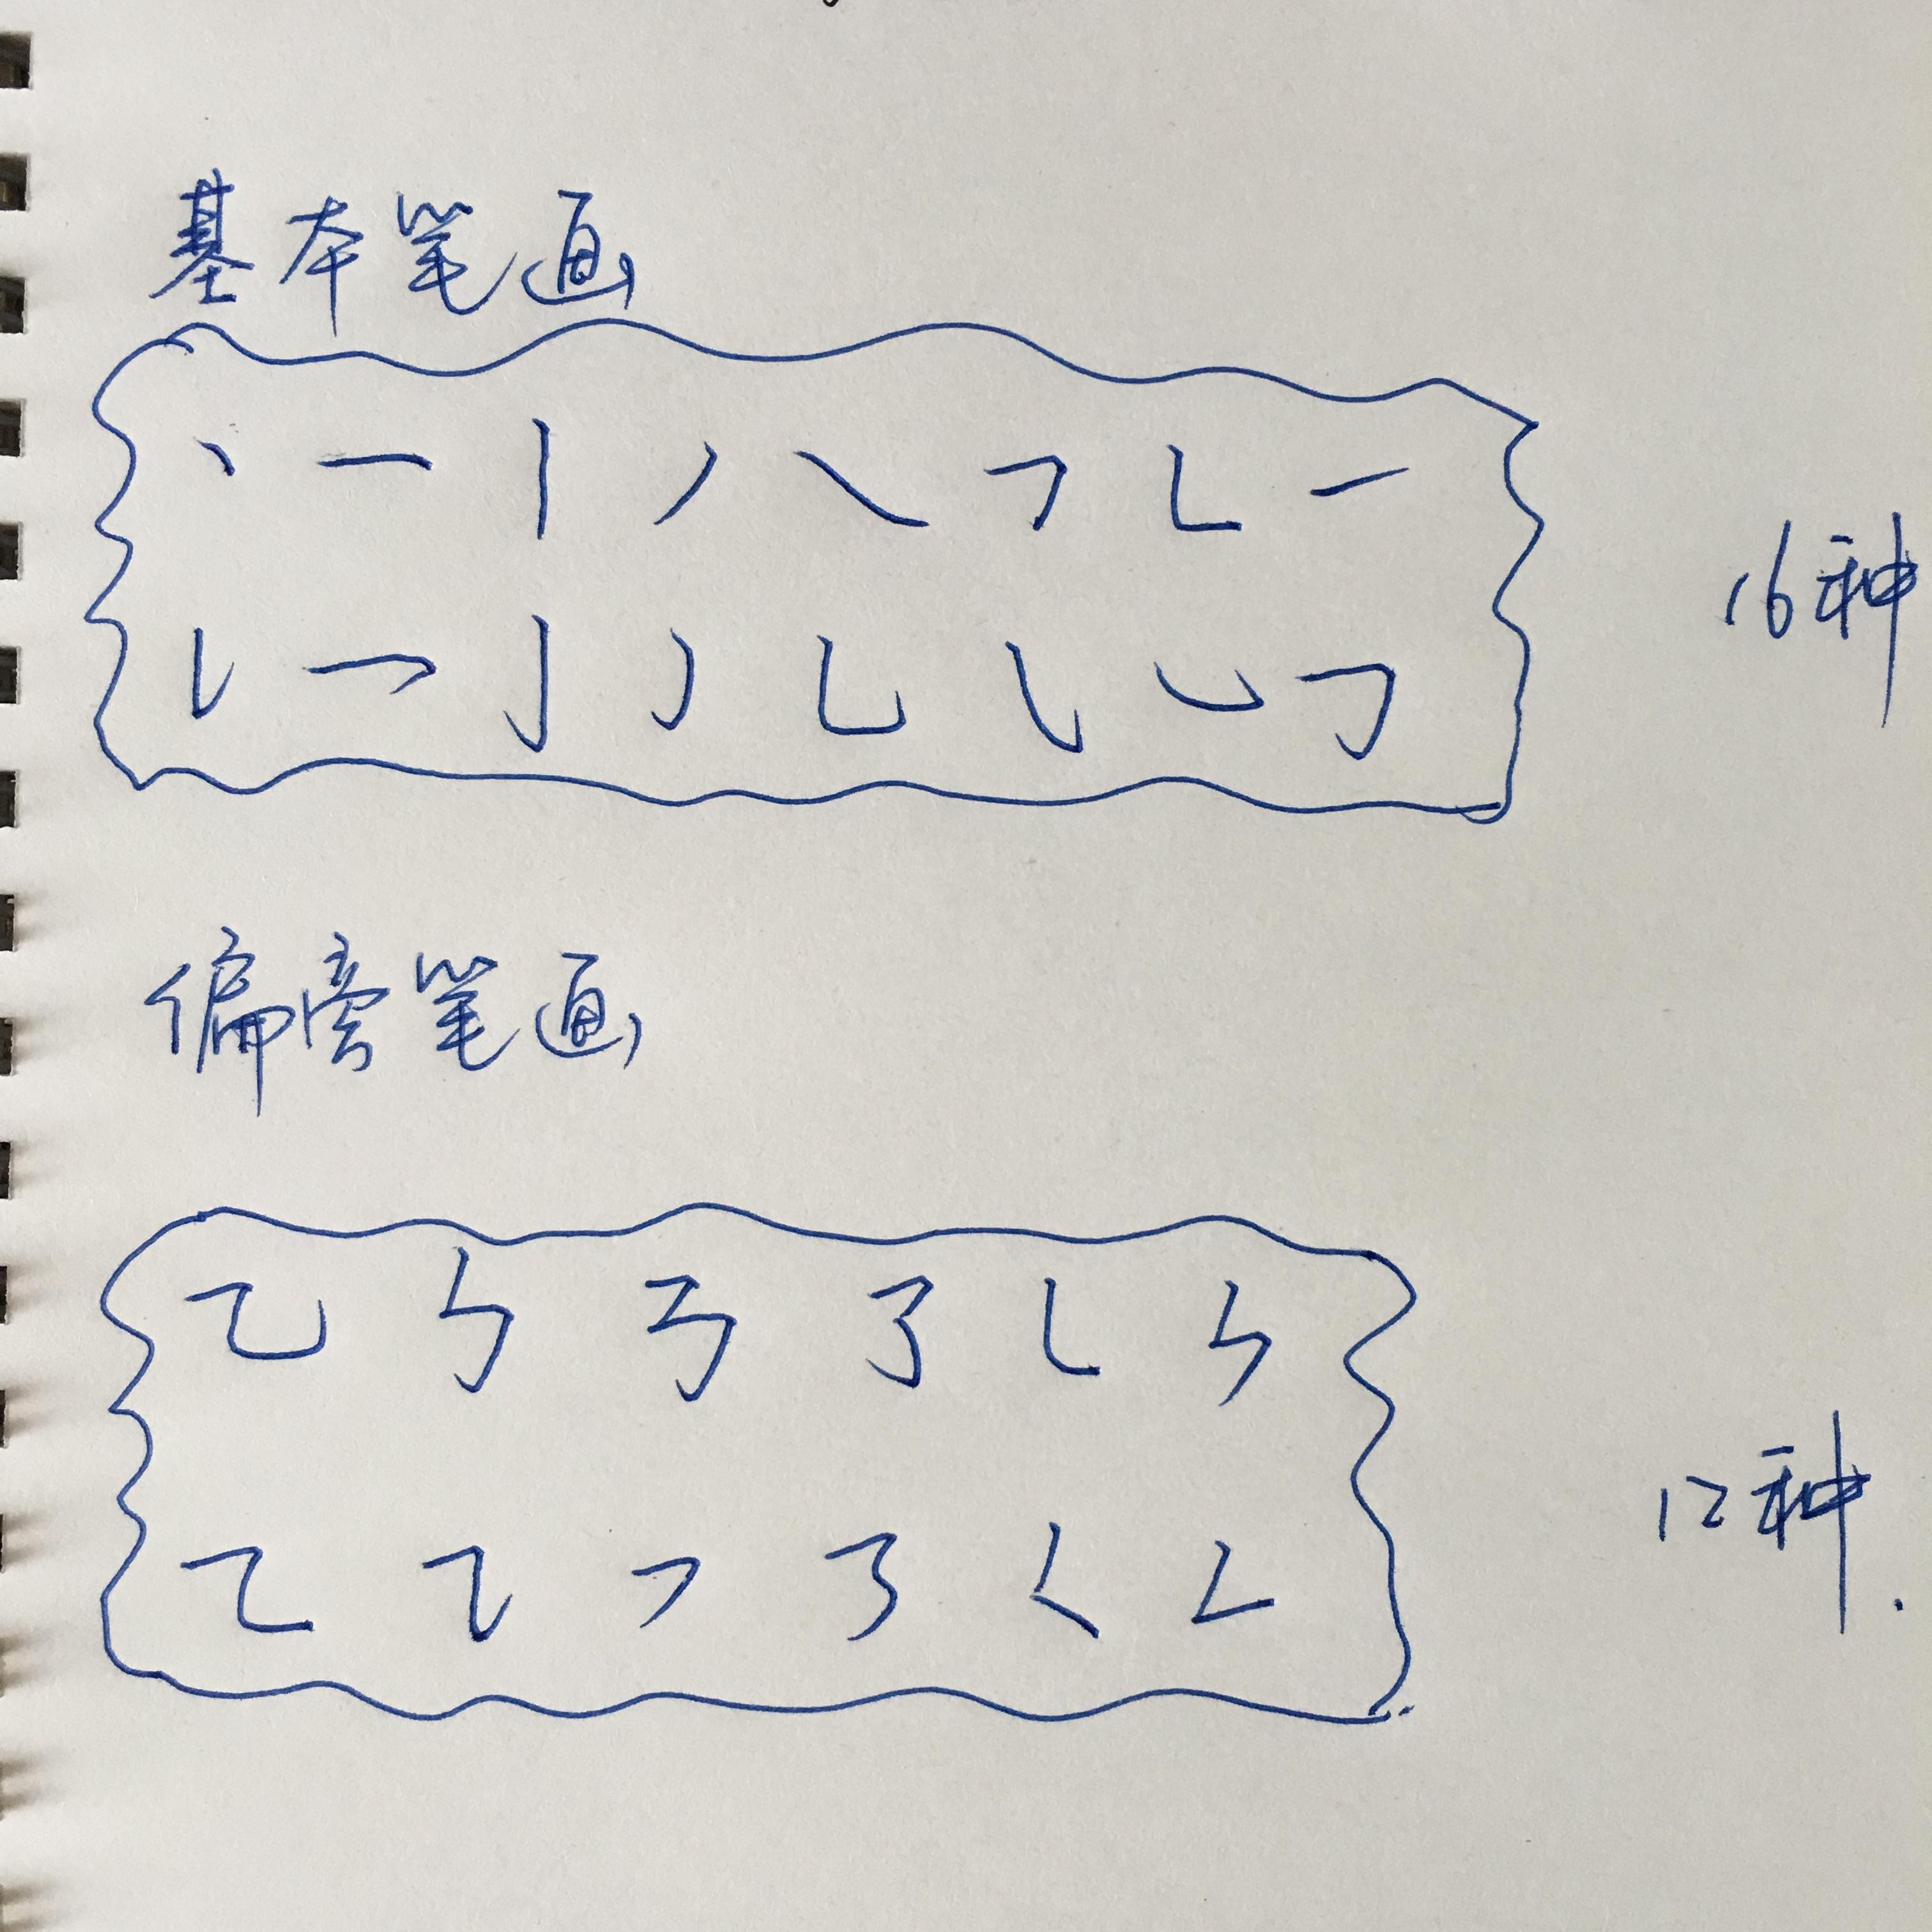 基本笔画
丶 一 丨 丿 ㇏ ㇇ ㇗ ㇀
16种
𠄌 乛 亅 ㇁ 乚 ㇂ ㇃ 𠃌
偏旁笔画
乙 ㇉ ㇡ ㇌ ㇄ ㇞
12种.
㇍ ㇊ ㇇ ㇋ ㇛ ㇜